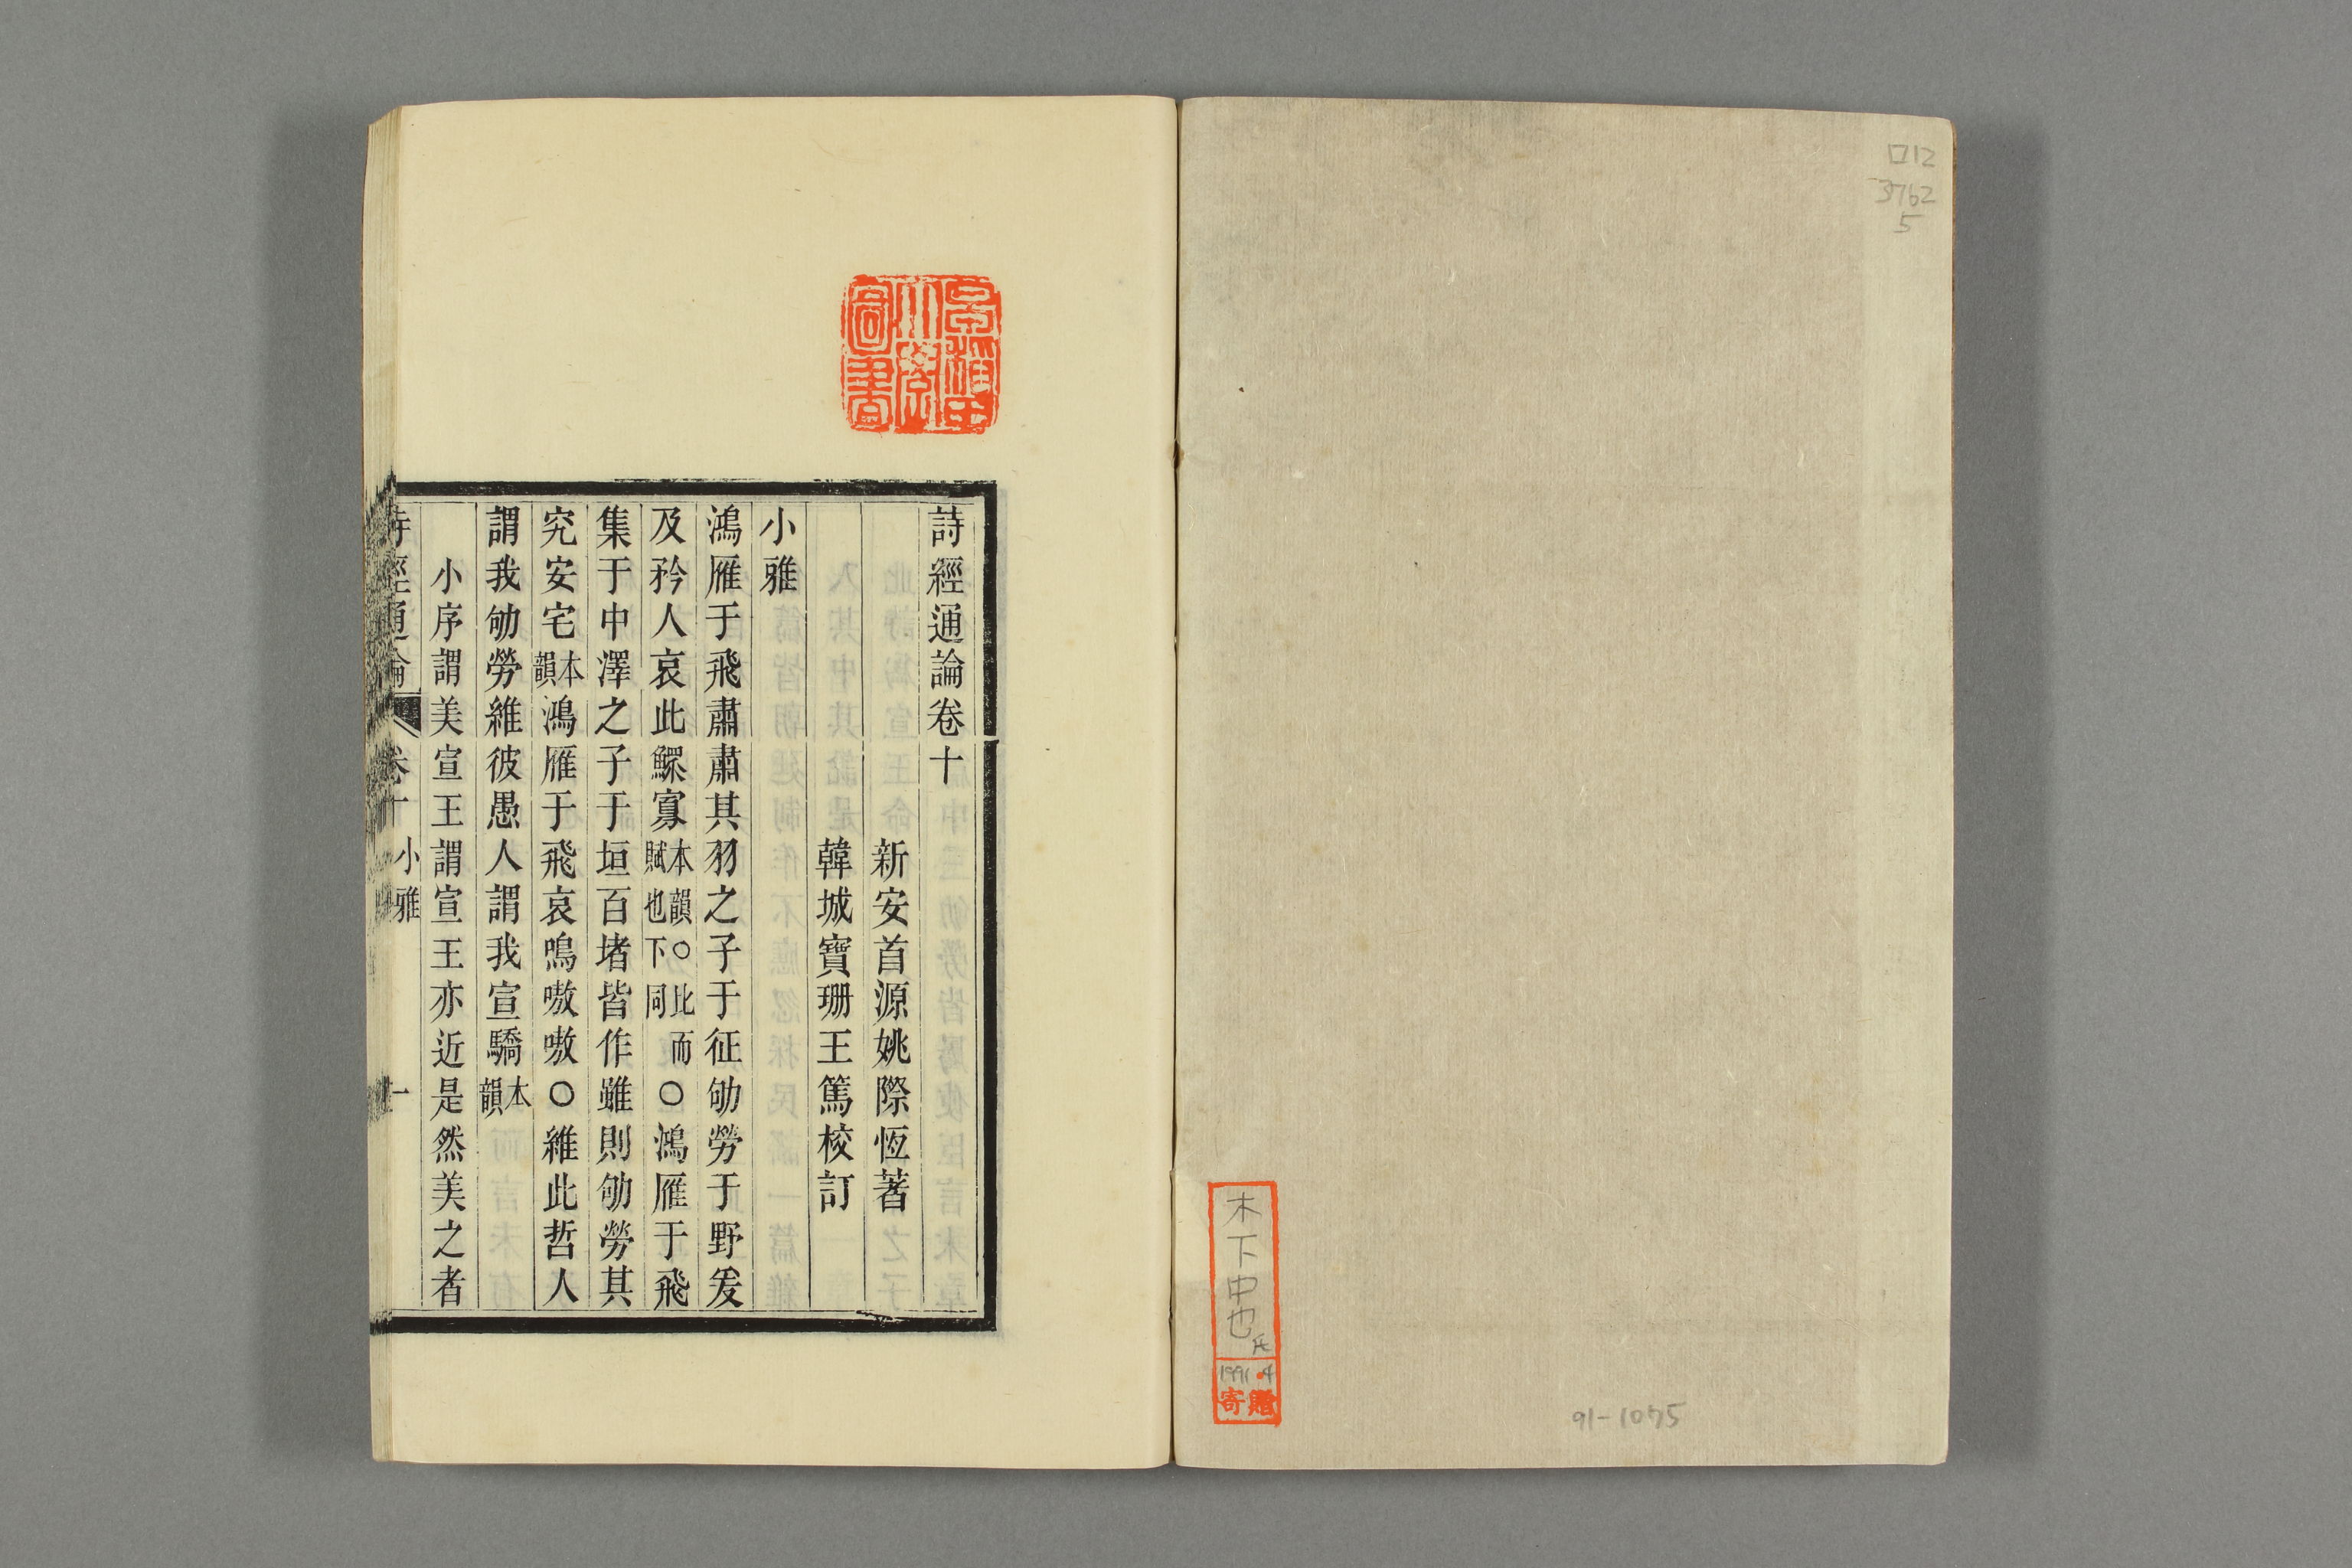 ロ12
3762
5
木下中也氏
1991.4
寄贈
91-1075
早稲田大學圖書
詩經通論卷十
新安首源姚際恆著
韓城寶珊王篤校訂
小雅
鴻雁于飛肅肅其羽之子于征劬勞于野爰
及矜人哀此鰥寡本韻○比而賦也下同○鴻雁于飛
集于中澤之子于垣百堵皆作雖則劬勞其
究安宅本韻鴻雁于飛哀鳴嗷嗷○維此哲人
謂我劬勞維彼愚人謂我宣驕本韻
小序謂美宣王謂宣王亦近是然美之者
詩經通論 卷十 小雅 一